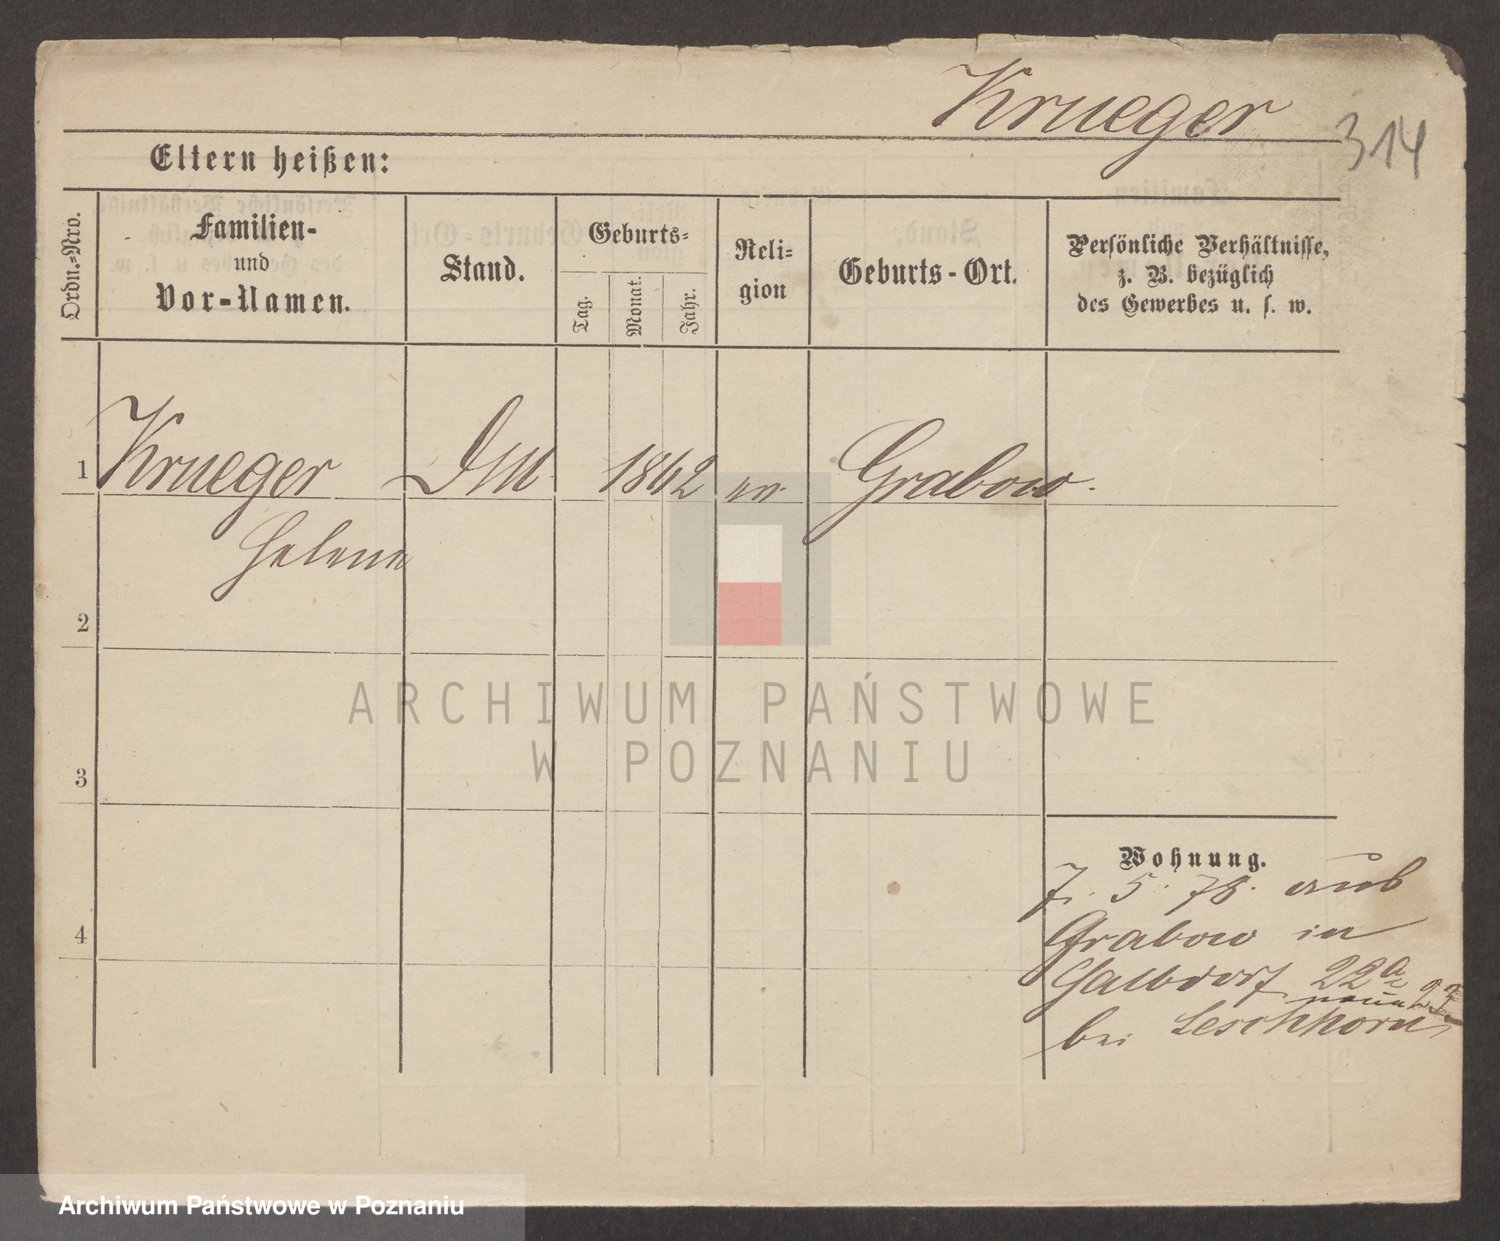 Krueger
314
Eltern heißen:
Ordn.-Nro.
Familien-
und
Vor-Namen.
Stand.
Geburts-
Tag.
Monat.
Jahr.
Reli-
gion
Geburts-Ort.
Persönliche Verhältnisse,
z. B. bezüglich
des Gewerbes u. s. w.
1 Krueger DM 1862 ev. Grabow.
Helene
2
3
4
Wohnung.
7. 5. 78. aus
Grabow in
22a
bei Leschhorn
ARCHIWUM PAŃSTWOWE
W POZNANIU
Archiwum Państwowe w Poznaniu